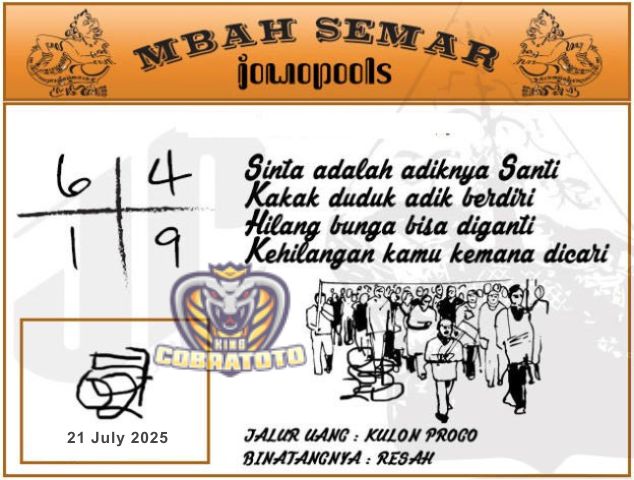 MBAH SEMAR
jowopools
6 4
1 9
Sinta adalah adiknya Santi
Kakak duduk adik berdiri
Hilang bunga bisa diganti
Kehilangan kamu kemana dicari
KING
COBRATOTO
21 July 2025
JALUR UANG : KULON PROGO
BINATANGNYA : RESAH